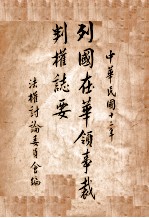 中華民國十二年
列國在華領事裁
判權誌要
法權討論委員會編